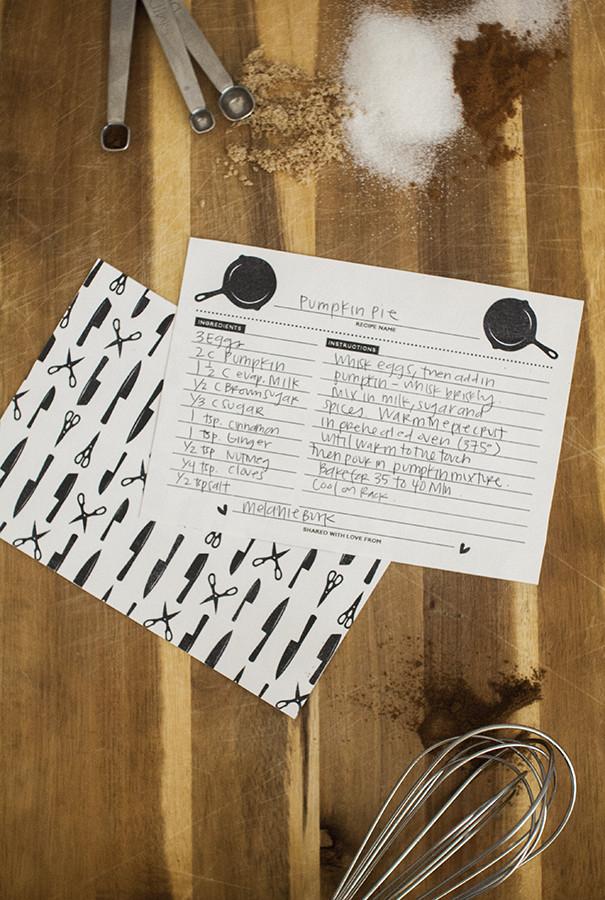 Pumpkin Pie
RECIPE NAME
INGREDIENTS
3 Eggs
2 c Pumpkin
1 ½ c evap. Milk
½ c Brown sugar
⅓ c sugar
1 tsp. cinnamon
1 tsp. Ginger
½ tsp Nutmeg
¼ tsp. cloves
½ tsp salt
INSTRUCTIONS
Whisk eggs, then add in
pumpkin - whisk briskly.
Mix in milk, sugar and
spices. Warm the piecrust
in preheated oven (375°)
until warm to the touch
then pour in pumpkin mixture.
Bake for 35 to 40 Min
Cool on Rack.
Melanie Burk
SHARED WITH LOVE FROM